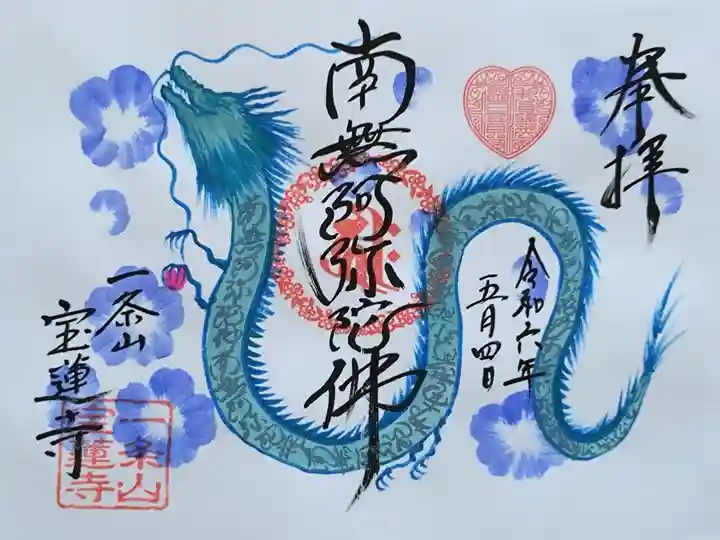 奉拝
南無阿弥陀佛
令和六年
五月四日
一条山
宝蓮寺
一条山
宝蓮寺